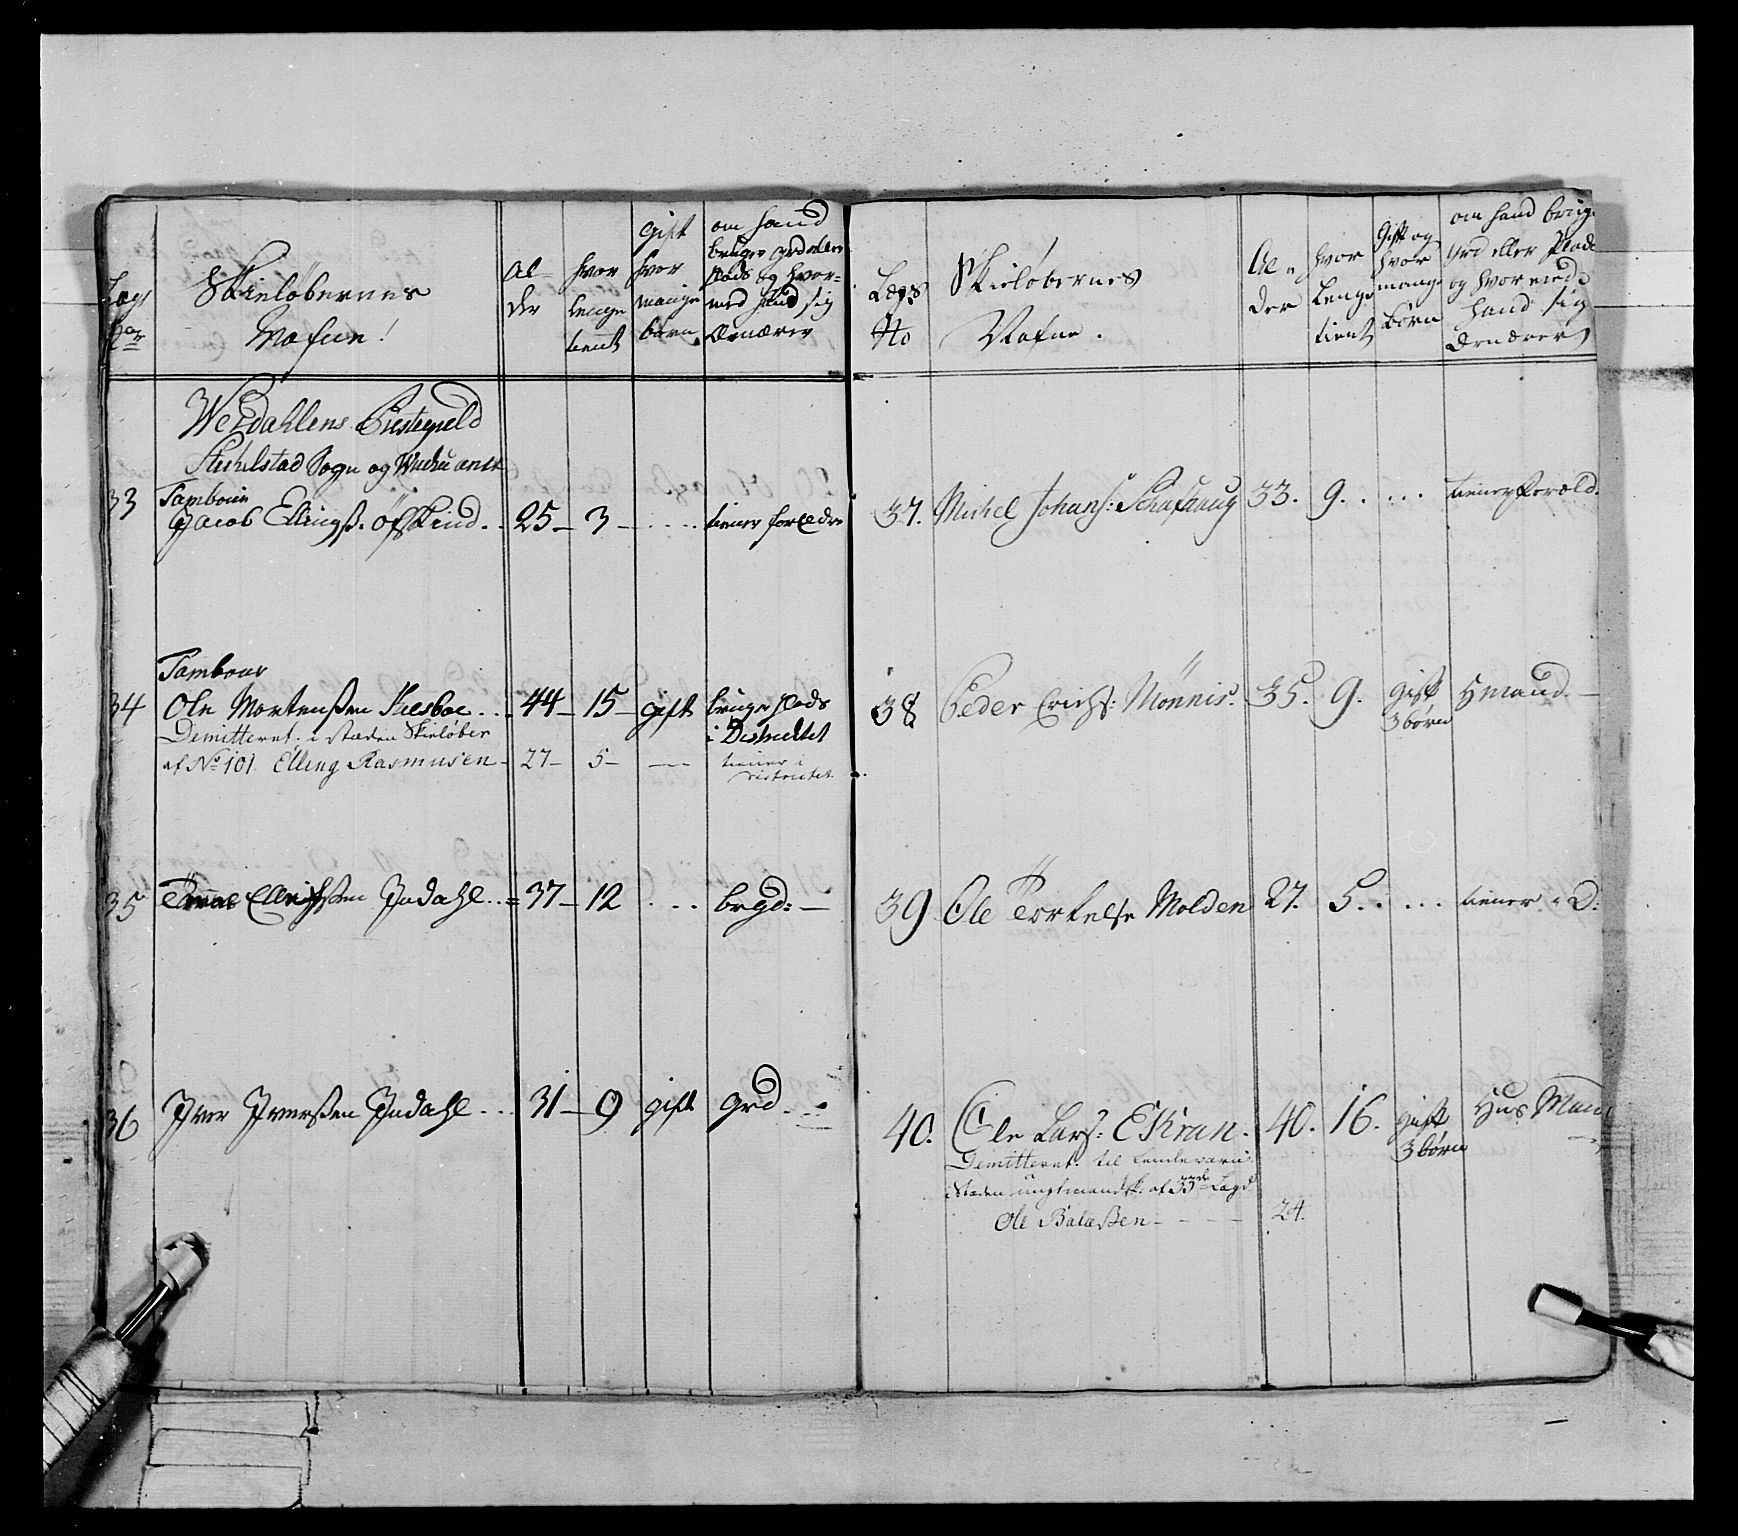 Skieløbernes
Nafne!
Al-
der
hvor
lenge
tient
gift
hvor
mange
børn
om hand
bruger grd eller
Plads og hvor-
med hand sig
Ernærer
Werdahlens Præstegield
Stichelstad Sogn og Wuchu anex
33 Tambour
Jacob Ellingss. Öfskind. 25 - 3 - .... tiener forældre
34 Tambour
Ole Mortenssen 44 - 15 - gift bruge Plads
i Districtet
Demitteret. i stæden Skieløber
af No 101. Elling Rasmusen - 27 - 5 - tiener i
Districtet
35 Ellingssen Indahl .. 37 - 12 ... brgd: -
36 Iver Iverssen Indahl ... 31 - 9 gift grd. - -
Lægs
No
Skieløbernes
Nafne.
Al-
der
hvor
lenge
tient
Gift og
hvor
mange
børn
om hand bruge
grd eller Plads
og hvor med
hand sig
Ernærer
37. Michel Johans: 33. 9. .... tiener foræld.
38 Peder Erichs: Mönnis. 35. 9. gift
3 børn Hmand. -
39 Ole Torkelse Molden 27. 5. .... tiener i D:
40. Ole Lars: Ekran. 40. 16. gift
3 børn Huus Mand
Demitteret. til Landeværn
i Stæden ungt mandsk: af 33de Lægd
Ole Balassen - - - - 24.